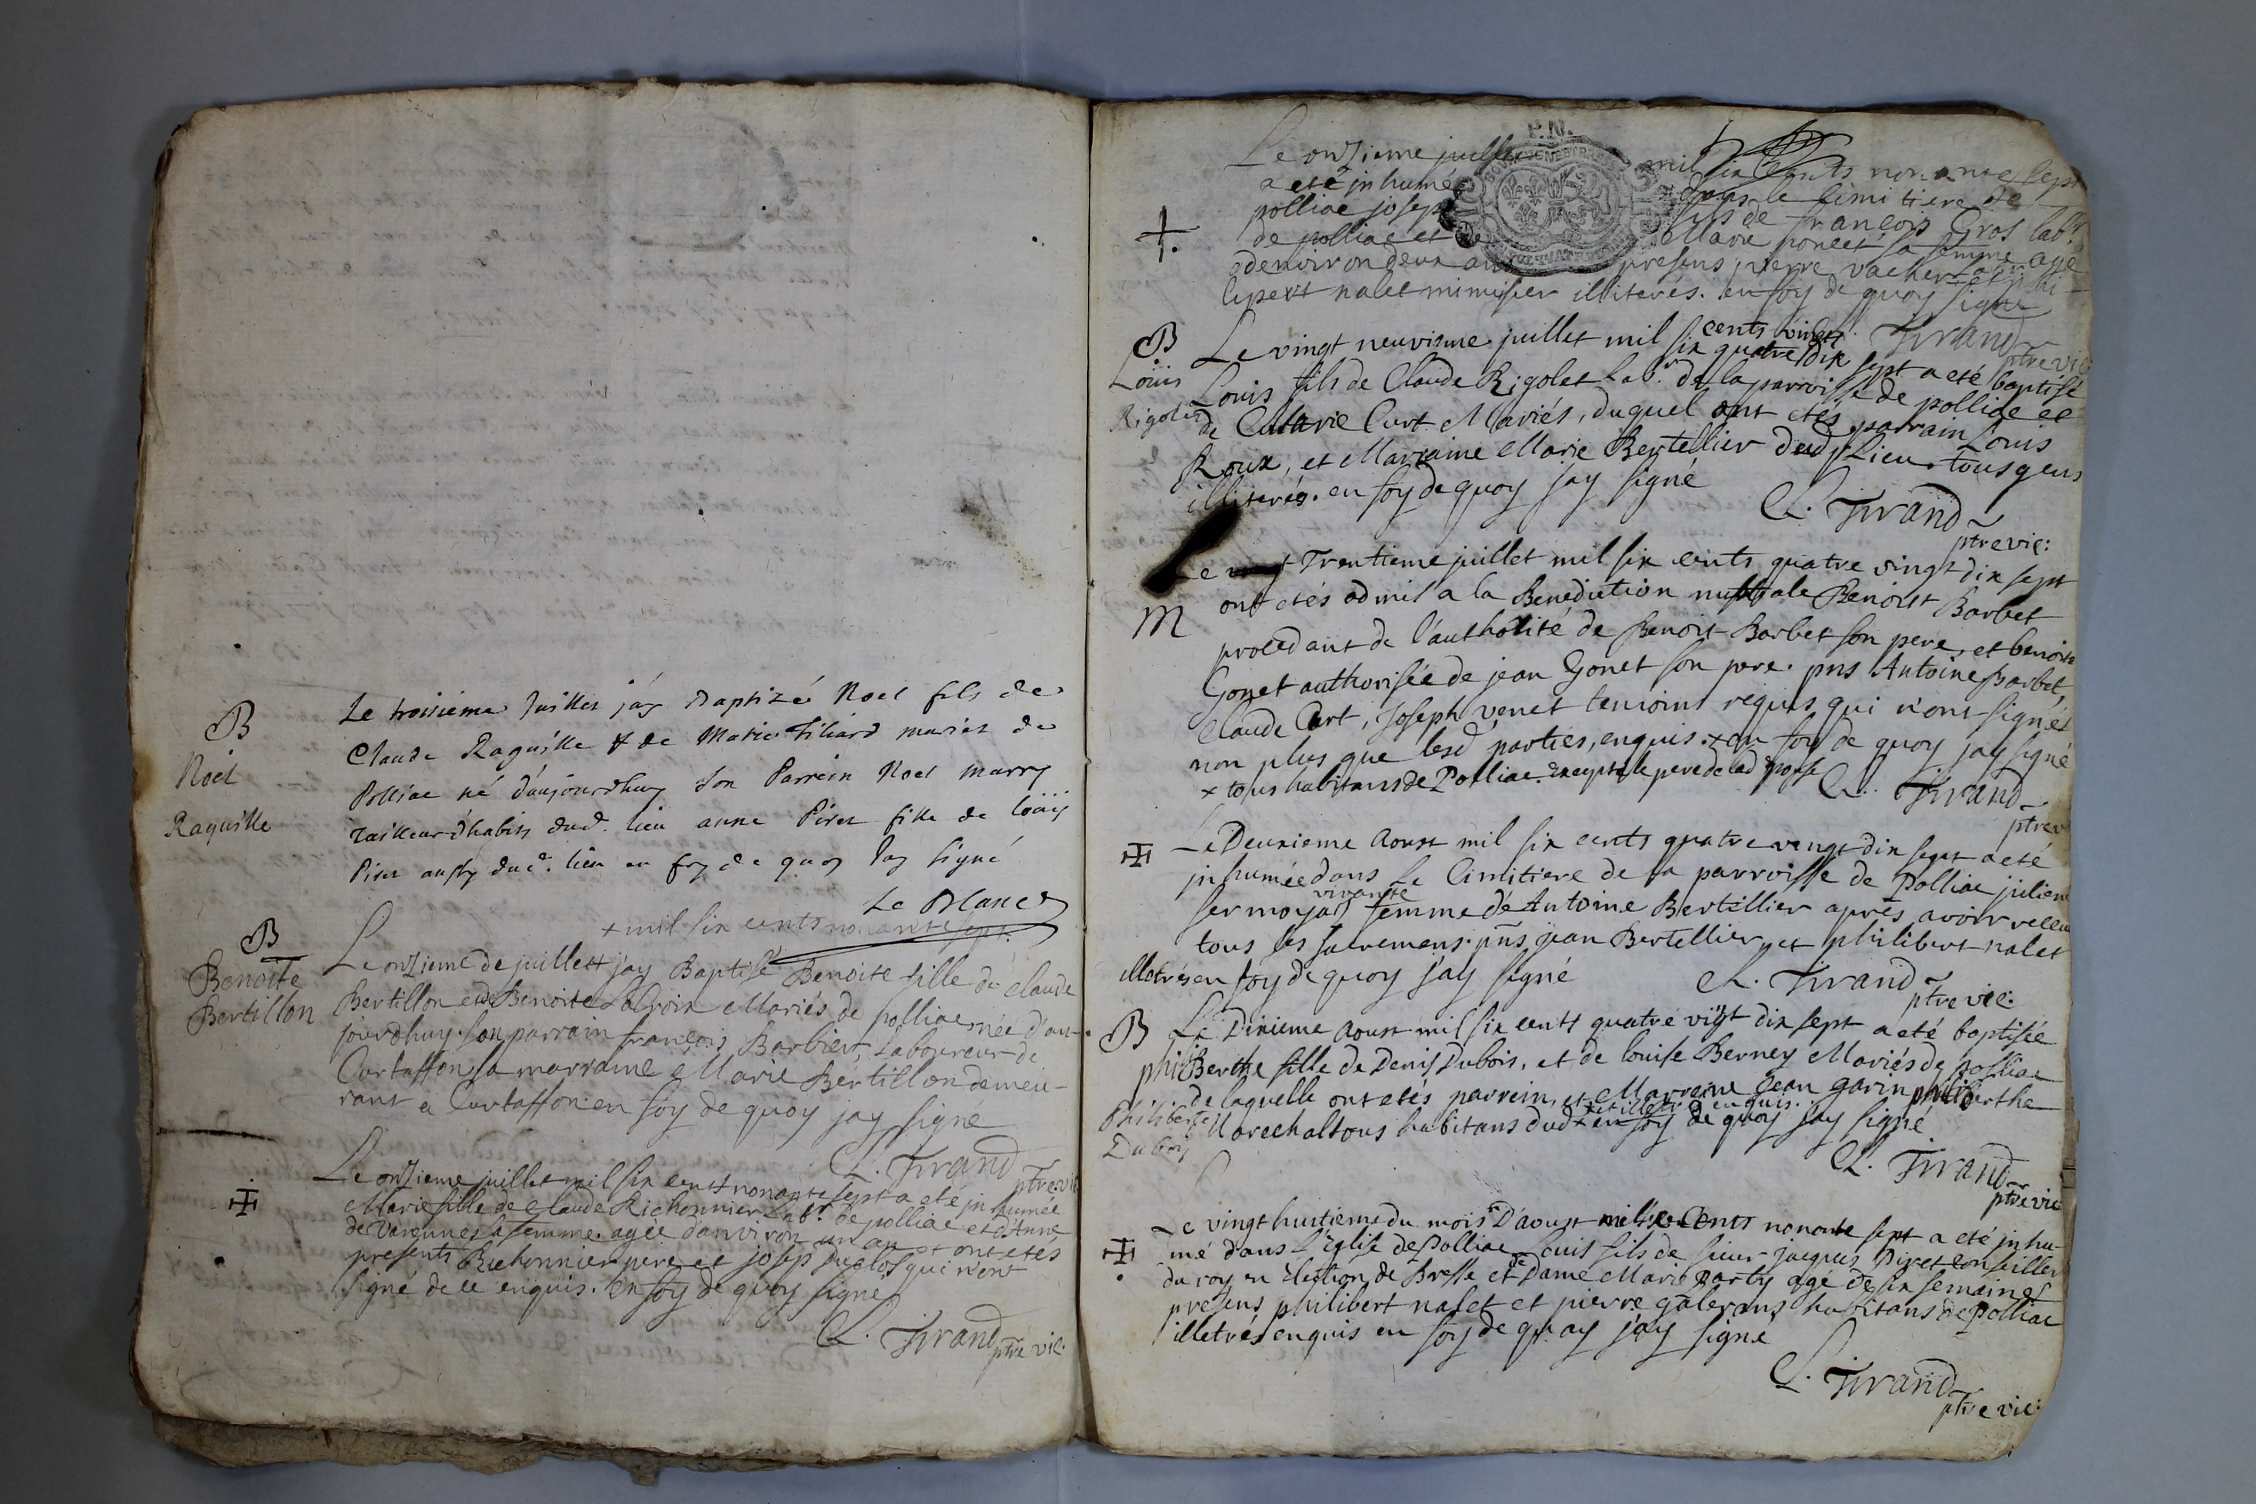 B
Noël
Raquille
Le troisième Juillet j'ay Baptizé Noel fils de
Claude Raquille & de Marie Filiard mariez de
Polliac né d'aujourdhuy son Parrein Noel marry
tailleur d'habits dud. lieu anne Piret fille de loüis
Piret aussy dud. lieu en foy de quoy Jay signé
Le Blanc
+ mil six cents nonante sept.
B
Benoite
Bertillon
Le onzieme de juillet + jay Baptisé Benoite fille de Claude
Bertillon et de Benoite Lacroix Mariés de polliac née d'au-
jourdhuy. son parrain françois Barbier, Laboureur de
Curtaffon, sa marraine Marie Bertillon demeu-
rant a Curtaffon en foy de quoy jay signé
C. Tirand ptre vic
Le onzieme juillet mil six cents nonante sept a eté inhumée
Marie fille de Claude Richonnier Labr. de polliac et d'Anne
de Varennes sa femme. agée d'anviron un an et ont etés
presents Richonnier pere et josep Duclos qui n'ont
signé de ce enquis. en foy de quoy signe
C. Tirand
ptre vic.
P.N.
Le onzieme juillet mil six cents nonante sept
a eté inhumé dans le cimitiere de
polliac joseph fils de françois Gros labr.
de polliac et de Marie poncet sa femme agé
denviron deux ans presens pierre vacher et phi
lipert nalet mimisier illiterés. en foy de quoy signe
Tirand
ptre vic
B
Loüis
Rigolet
Le vingt neuvisme juillet mil six cents quatre vingt dix sept a eté baptisé
Louis fils de Claude Rigolet Labr. de la parroisse de polliac et
de Clularie Curt Mariés, duquel ont etés parrain Louis
Roux, et Marraine Marie Bertellier dud. Lieu tous gens
illiterés. en foy de quoy jay signé
C. Tirand
ptre vic:
M
Le Trentieme juillet mil six cents quatre vingt dix sept
ont etés admis a la Benediction nuptiale Benoist Barbet
procedant de l'authorité de Benoit Barbet son pere, et benoite
Gonet authorisée de jean Gonet son pere. pns Antoine Barbet,
Claude Curt, Joseph venet temoins requis qui n'ont signés
non plus que lesd parties, enquis. + en foy de quoy jay signé
+ tous habitans de Polliac. Excepté le pere de lad Epouse
C. Tirand
ptre v
Le Deuxieme Aoust mil six cents quatre vingt dix sept a eté
inhumée dans Le Cimitiere de la parroisse de Polliac julienne
sermoyad vivante femme de Antoine Bertellier aprés avoir receu
tous les sacremens. pns jean Bertellier, et philibert nalet
illetrés en foy de quoy j'ay signé
C. Tirand
ptre vic.
B
Philiberte
Duboy
Le Dixieme Aoust mil six cents quatre vingt dix sept a eté baptisée
philiBerthe fille de Denis Dubois, et de louise Berney Mariés de polliac
de laquelle ont etés parrein, et Marreine Jean garin philiberthe
Morechal tous habitans dud + en foy de quoy jay signé
+ et illetrés enquis.
C. Tirand
ptre vic
Le vingt huitieme du mois D'aoust mil six Cents nonante sept a eté inhu-
mé dans L'Eglise de Polliac Louis fils de sieur jacques Piret conseiller
du roy en Election de Bresse et de Dame Marie Party agé de six semaines
presens philibert nalet et pierre galerans habitans de Polliac
illetrés enquis en foy de quoy j'ay signé
C. Tirand
ptre vic: